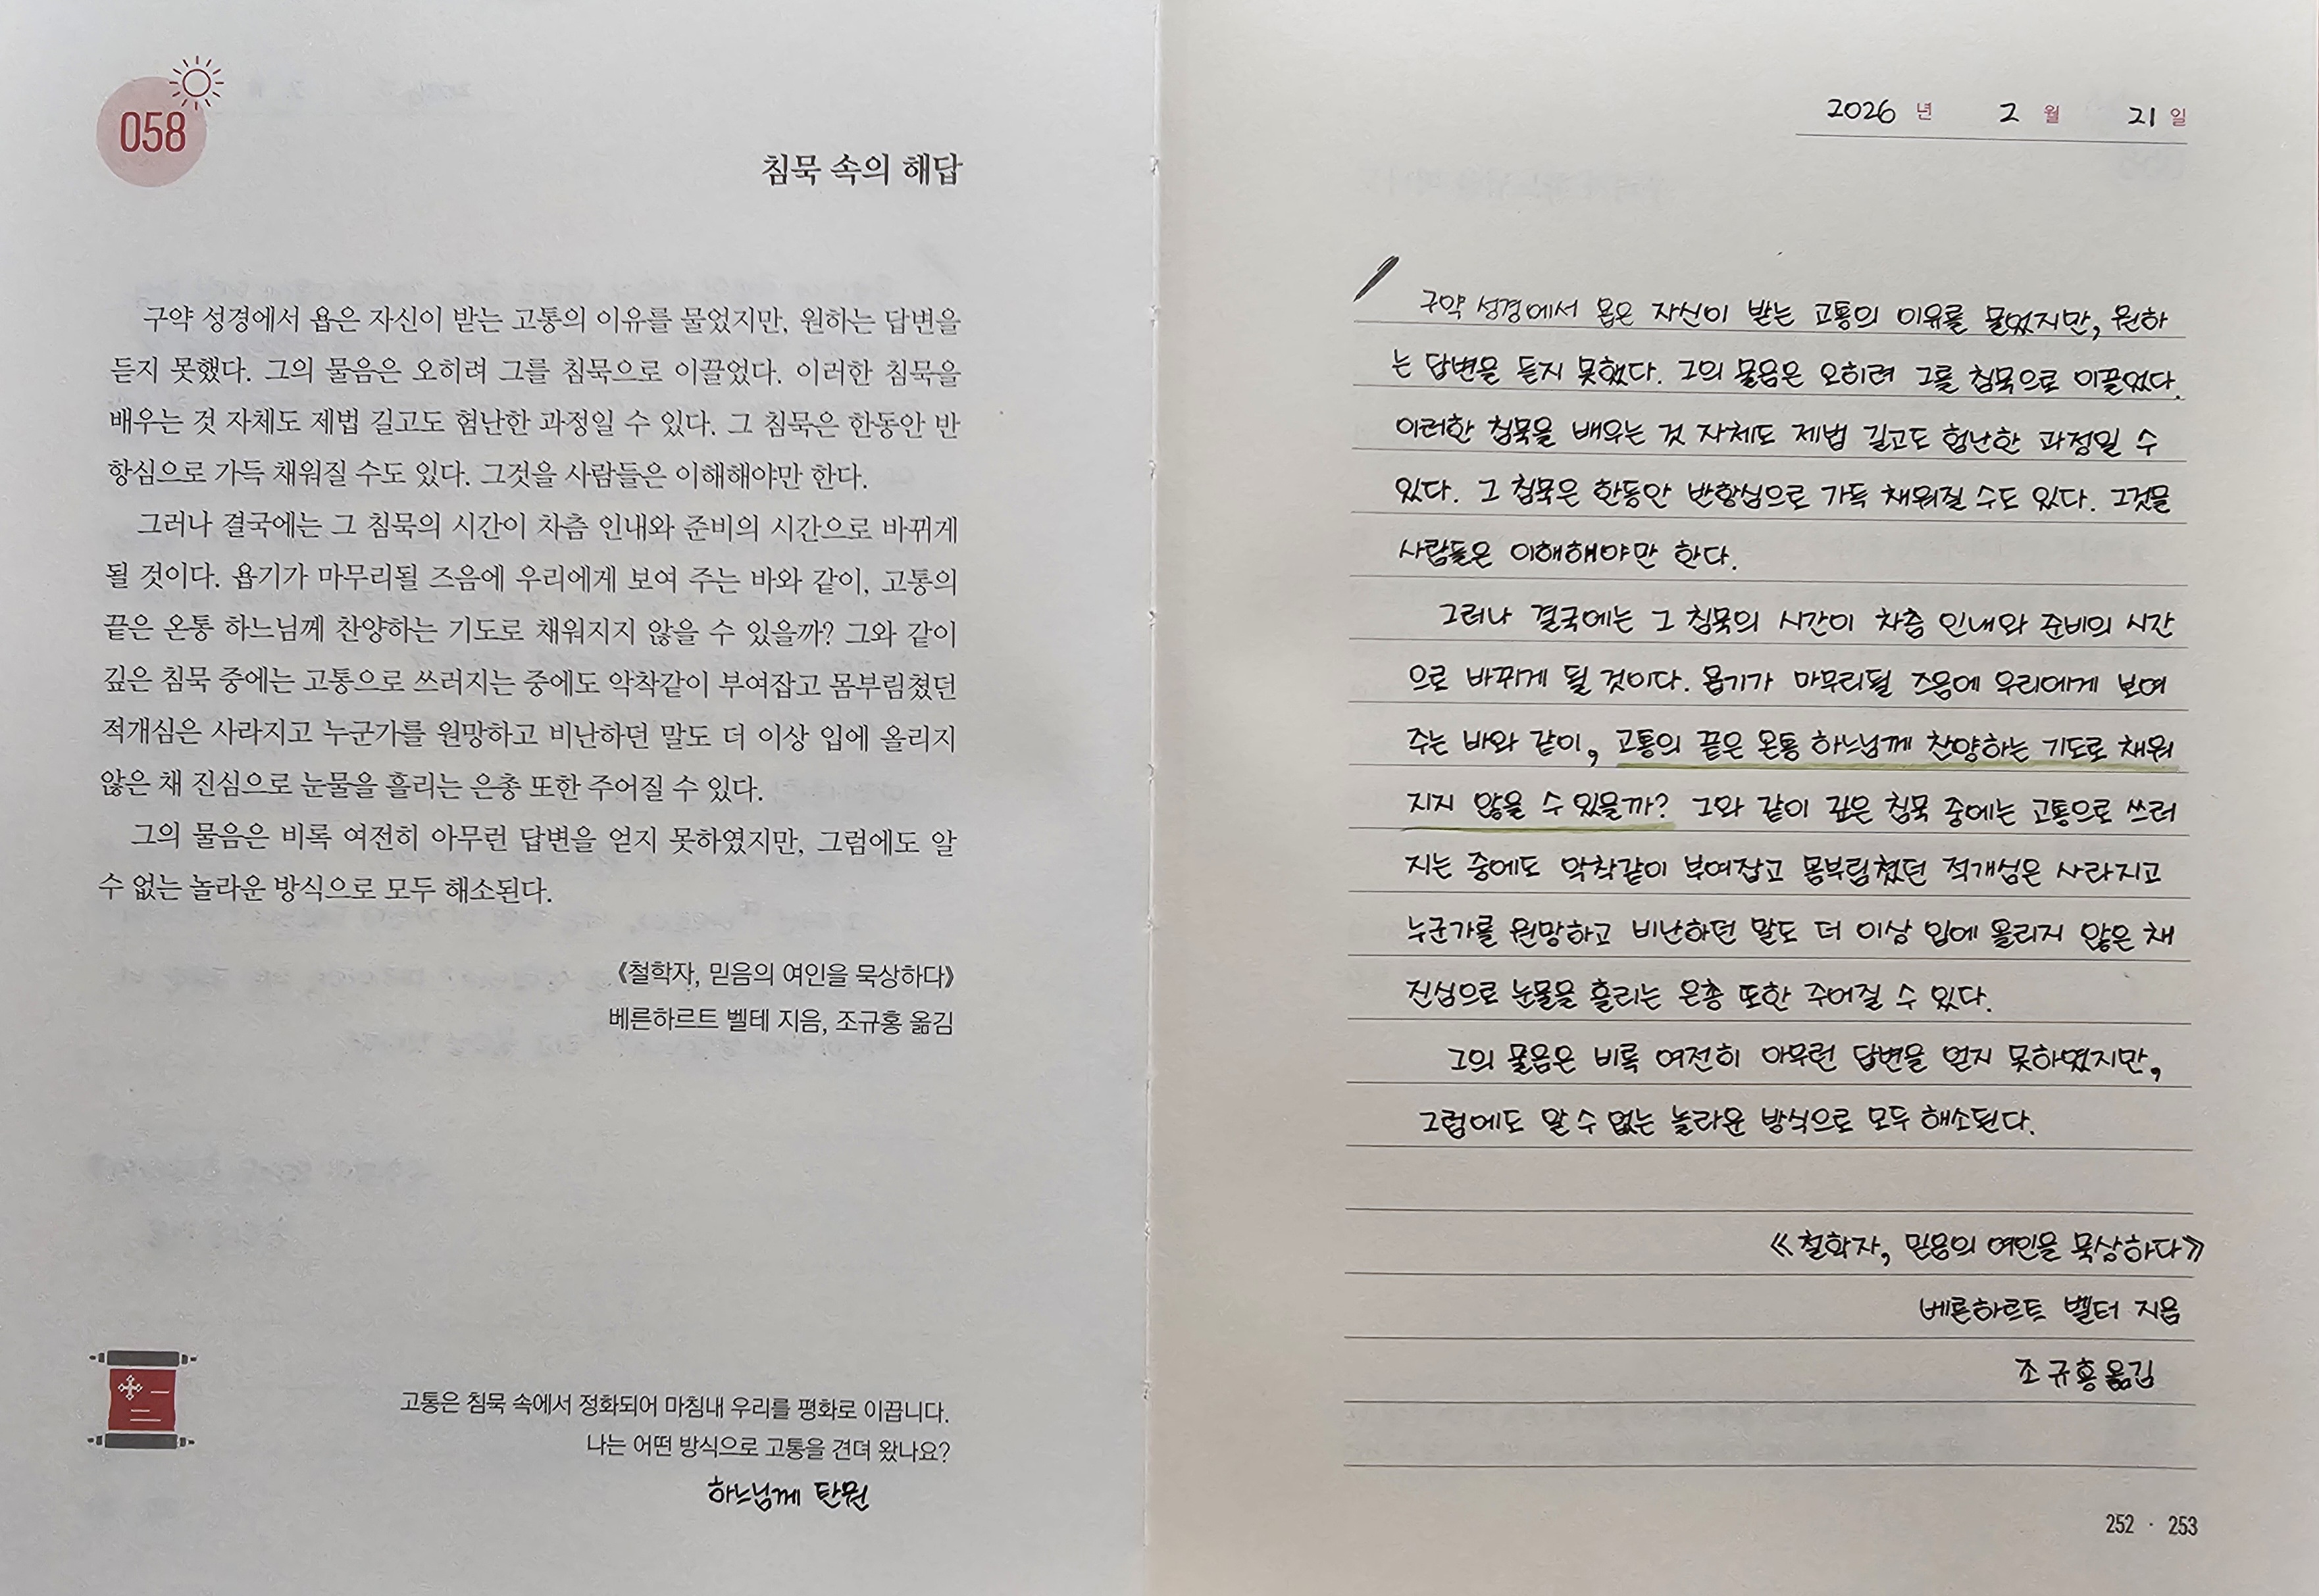 058
침묵 속의 해답
구약 성경에서 욥은 자신이 받는 고통의 이유를 물었지만, 원하는 답변을
듣지 못했다. 그의 물음은 오히려 그를 침묵으로 이끌었다. 이러한 침묵을
배우는 것 자체도 제법 길고도 험난한 과정일 수 있다. 그 침묵은 한동안 반
항심으로 가득 채워질 수도 있다. 그것을 사람들은 이해해야만 한다.
그러나 결국에는 그 침묵의 시간이 차츰 인내와 준비의 시간으로 바뀌게
될 것이다. 욥기가 마무리될 즈음에 우리에게 보여 주는 바와 같이, 고통의
끝은 온통 하느님께 찬양하는 기도로 채워지지 않을 수 있을까? 그와 같이
깊은 침묵 중에는 고통으로 쓰러지는 중에도 악착같이 부여잡고 몸부림쳤던
적개심은 사라지고 누군가를 원망하고 비난하던 말도 더 이상 입에 올리지
않은 채 진심으로 눈물을 흘리는 은총 또한 주어질 수 있다.
그의 물음은 비록 여전히 아무런 답변을 얻지 못하였지만, 그럼에도 알
수 없는 놀라운 방식으로 모두 해소된다.
《철학자, 믿음의 여인을 묵상하다》
베른하르트 벨테 지음, 조규홍 옮김
고통은 침묵 속에서 정화되어 마침내 우리를 평화로 이끕니다.
나는 어떤 방식으로 고통을 견뎌 왔나요?
하느님께 탄원
2026 년 2 월 21 일
구약 성경에서 욥은 자신이 받는 고통의 이유를 물었지만, 원하
는 답변을 듣지 못했다. 그의 물음은 오히려 그를 침묵으로 이끌었다.
이러한 침묵을 배우는 것 자체도 제법 길고도 험난한 과정일 수
있다. 그 침묵은 한동안 반항심으로 가득 채워질 수도 있다. 그것을
사람들은 이해해야만 한다.
그러나 결국에는 그 침묵의 시간이 차츰 인내와 준비의 시간
으로 바뀌게 될 것이다. 욥기가 마무리될 즈음에 우리에게 보여
주는 바와 같이, 고통의 끝은 온통 하느님께 찬양하는 기도로 채워
지지 않을 수 있을까? 그와 같이 깊은 침묵 중에는 고통으로 쓰러
지는 중에도 악착같이 부여잡고 몸부림쳤던 적개심은 사라지고
누군가를 원망하고 비난하던 말도 더 이상 입에 올리지 않은 채
진심으로 눈물을 흘리는 은총 또한 주어질 수 있다.
그의 물음은 비록 여전히 아무런 답변을 얻지 못하였지만,
그럼에도 알 수 없는 놀라운 방식으로 모두 해소된다.
《철학자, 믿음의 여인을 묵상하다》
베른하르트 벨터 지음
조규홍 옮김
252 · 253